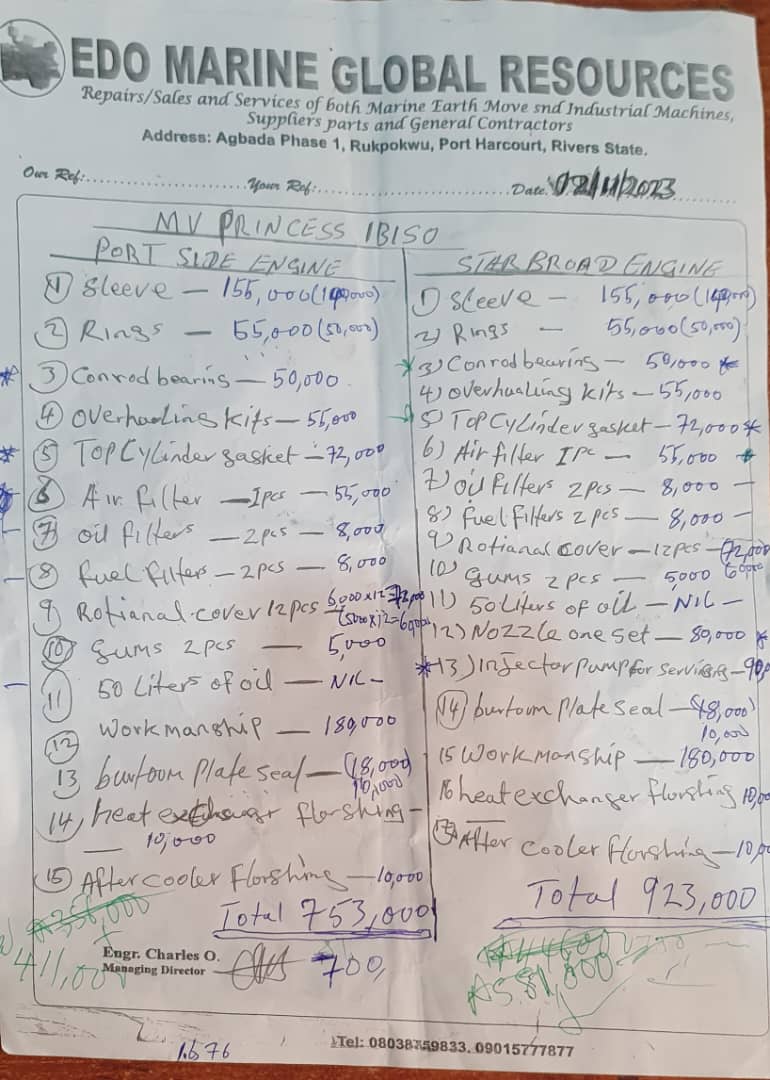 EDO MARINE GLOBAL RESOURCES
Repairs/Sales and Services of both Marine Earth Move snd Industrial Machines,
Suppliers parts and General Contractors
Address: Agbada Phase 1, Rukpokwu, Port Harcourt, Rivers State.
Our Ref:.......................Your Ref:..............................Date. 02/11/2023
MV PRINCESS IBISO
PORT SIDE ENGINE
1) Sleeve — 155,000(140,000)
2) Rings — 55,000(50,000)
* 3) Conrod bearing — 50,000
4) Overhauling kits — 55,000
* 5) Top Cylinder gasket — 72,000
6) Air filter — 1pcs — 55,000
7) oil filters — 2pcs — 8,000
8) fuel filters — 2pcs — 8,000
9) Rotianal cover 12pcs 6,000x12=72,000
(5000x12=60,000
10) gums 2pcs — 5,000
11) 50 Liters of oil — NIL -
12) Workmanship — 180,000
13) burtoom plate seal — (18,000)
10,000
14) heat exchanger florshing -
— 10,000
15) After cooler florshing — 10,000
Total 753,000
411,000
Engr. Charles O.
Managing Director
700,
STARBROAD ENGINE
1) Sleeve — 155,000(140,000)
2) Rings — 55,000(50,000)
* 3) Conrod bearing — 50,000 *
4) overhauling kits — 55,000
5) Top Cylinder gasket — 72,000 *
6) Air filter 1PC — 55,000 *
7) oil filters 2pcs — 8,000 —
8) fuel filters 2pcs — 8,000 —
9) Rotianal cover — 12pcs — 72,000
60,000
10) gums 2pcs — 5000
11) 50 Liters of oil — NIL —
12) Nozzle one set — 80,000 *
* 13) Injector pump for servicing — 90,0
14) burtoom plate seal — (18,000)
10,000
15 Workmanship — 180,000
16 heat exchanger florshing 10,00
17) After cooler florshing — 10,00
Total 923,000
581,000
1.676
Tel: 08038759833, 09015777877